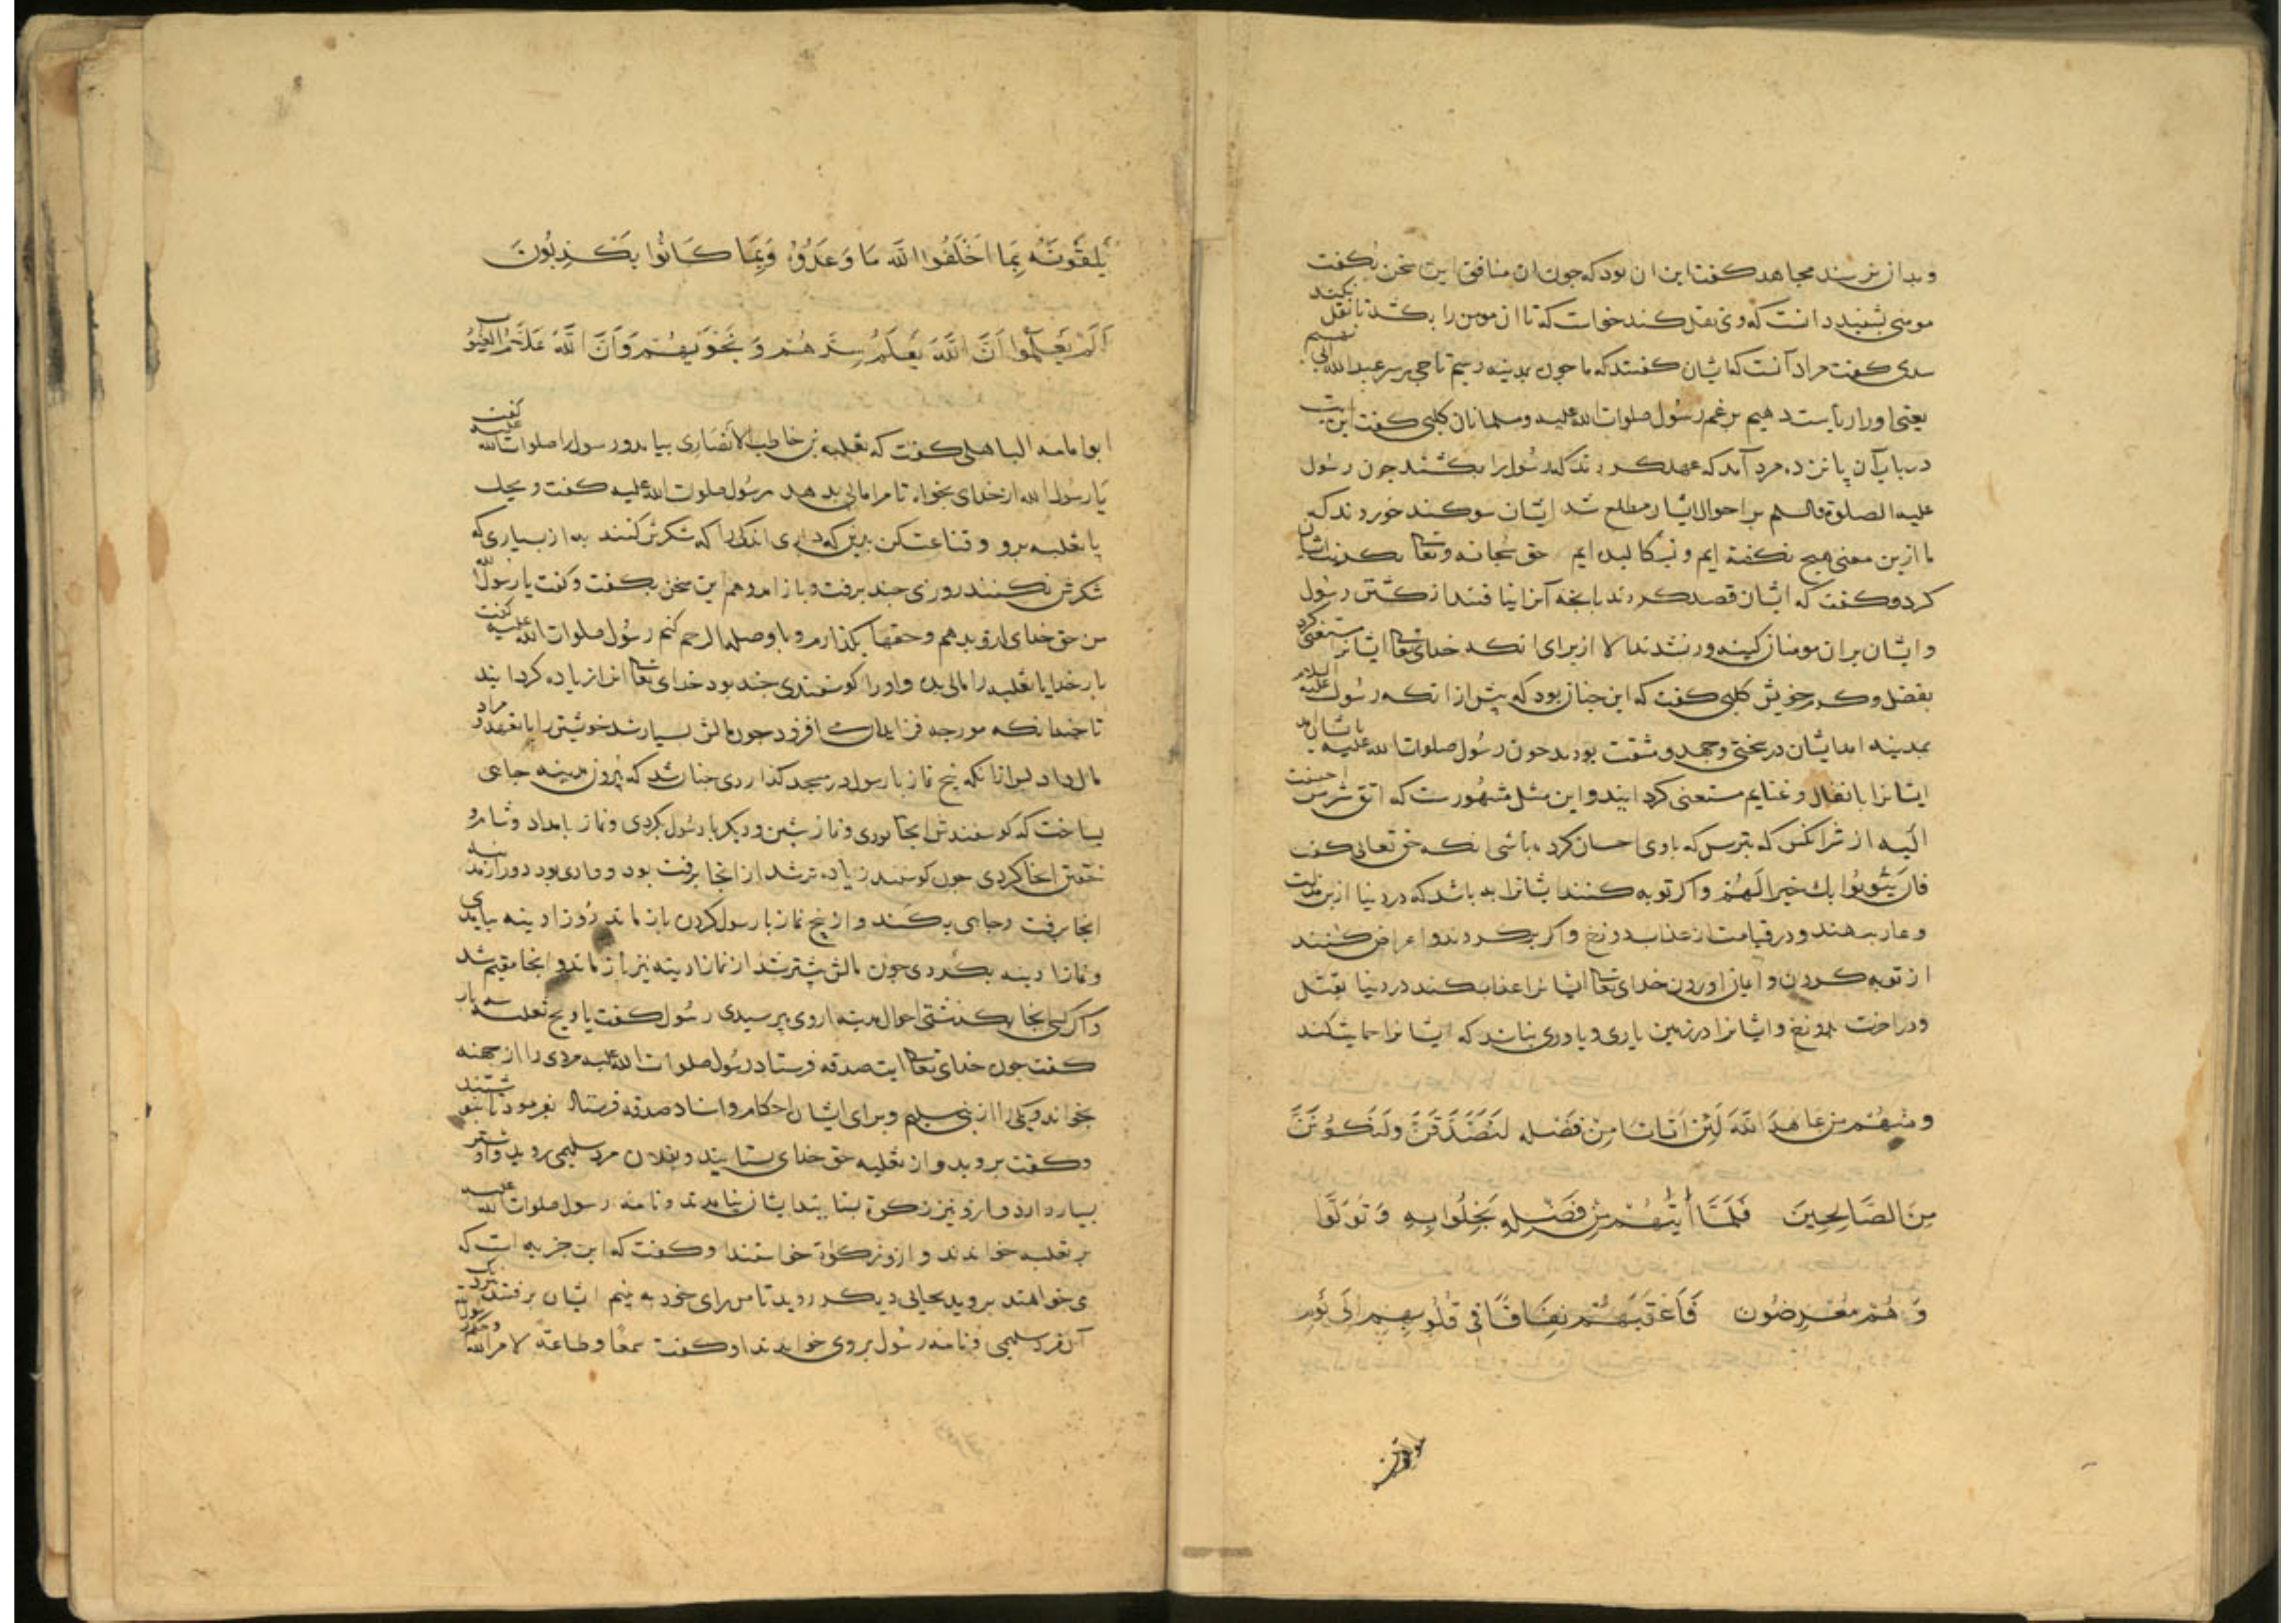 وبدان نرسند مجاهد کفت این ان بود که جون ان منافق این سخن بکفت
مومنی بشنید دانست که وی نقل کند خواست که تا ان مومن را بکشد تا نقل نکند
سدی کفت مراد آنست که ایشان کفتند که ما چون بمدینه رسیم تاجی بر سر عبدالله ابی نهیم
یعنی او را ریاست دهیم برغم رسول صلوات الله علیه ومسلمانان کلبی کفت این ایت
در باب آن پانزده مرد آمد که عهد کردند که رسول را بکشند جون رسول
علیه الصلوة والسلم بر احوال ایشان مطلع شد ایشان سوکند خوردند که
ما ازین معنی هیچ نکفته ایم و نسکالیده ایم حق سبحانه وتعالی تکذیب ایشان
کرد وکفت که ایشان قصد کردند بانجه آنرا نیافتند از کشتن رسول
وایشان بران مومنان کینه ور نشدند الا از برای انکه خدای تعالی ایشانرا مستغنی کرد
بفضل وکرم خویش کلبی کفت که این جنان بود که پیش از انکه رسول علیه السلام
بمدینه امد ایشان در سختی وجهد ومشقت بودند جون رسول صلوات الله علیه باایشان امد
ایشانرا بانفال وغنایم مستغنی کردانید واین مثل مشهورست که اتق شر من احسنت
الیه از شر انکس که بترس که باوی احسان کرده باشی انکه حق تعالی کفت
فان یتوبوا یك خیرا لهم واکر توبه کنند ایشانرا به باشد که در دنیا ازین مذلت
وعار برهند ودر قیامت از عذاب دوزخ واکر برکردند واعراض کنند
از توبه کردن وایمان اوردن خدای تعالی ایشانرا عذاب کند در دنیا بقتل
ودر اخرت بدوزخ وایشانرا در زمین یاری ویاوری نباشد که ایشانرا حمایت کند
ومنهم من عاهد الله لئن اتانا من فضله لنصدقن ولنکونن
من الصالحین فلما أتیهم من فضله بخلوا به وتولوا
وهم معرضون فاعقبهم نفاقا فی قلوبهم الی یوم
یلقونه بما اخلفوا الله ما وعدوه وبما کانوا یکذبون
الم یعلموا ان الله یعلم سرهم ونجویهم وان الله علام الغیوب
ابوامامه الباهلی کفت که ثعلبه بن حاطب الانصاری بیامد ورسول را صلوات الله علیه کفت
یا رسول الله از خدای بخواه تا مرا مالی بدهد رسول صلوات الله علیه کفت ویحك
یا ثعلبه برو وقناعت کن بدین که داری اندکی را که شکرش کنند به از بسیاری که
شکرش نکنند روزی جند برفت وباز امد وهم این سخن بکفت وکفت یا رسول الله
من حق خدای ازو بدهم وحقها بکذارم وباو صلة الرحم کنم رسول صلوات الله علیه کفت
بار خدایا ثعلبه را مالی بده واورا کوسفندی جند بود خدای تعالی انرا زیاده کردانید
تا جندانکه مورجه فزاید ان می افزود جون مالش بسیار شد خویشتن را
مال داد پس ازانکه پنج نماز با رسول در مسجد کذاردی جنان شد که بیرون مدینه جای
بساخت که کوسفندش انجا بودی ونماز پیشین ودیکر با رسول بکردی ونماز بامداد وشام و
خفتن انجا کردی جون کوسفند زیاده تر شد از انجا برفت بود ووادی بود دور از مدینه
انجا برفت وجای بکند واز پنج نماز با رسول کردن باز ماند روز ادینه بیامدی
ونماز ادینه بکردی جون مالش بیشتر شد از نماز ادینه نیز باز ماند وانجا مقیم شد
واکر کسی انجا بکذشتی احوال مدینه ازوی پرسیدی رسول کفت یا ویح ثعلبه سه بار
کفت جون خدای تعالی ایت صدقه فرستاد رسول صلوات الله علیه مردی را از جهنه
بخواند ویکی را از بنی سلیم وبرای ایشان احکام واسناد صدقه فرستاد بفرمود تا بنوشتند
وکفت بروید واز ثعلبه حق خدای بستانید وبفلان مرد سلیمی روید واو شتر
بسیار دارد وازو نیز زکوة بستانید ایشان بیامدند ونامه رسول صلوات الله علیه
بر ثعلبه خواندند وازو زکوة خواستند او کفت که این جزیه است که
می خواهند بروید بجایی دیکر روید تا من رای خود به بینم ایشان برفتند نزدیك
آن مرد سلیمی ونامه رسول بر وی خواندند او کفت سمعا وطاعة لامر الله وحکم رسول